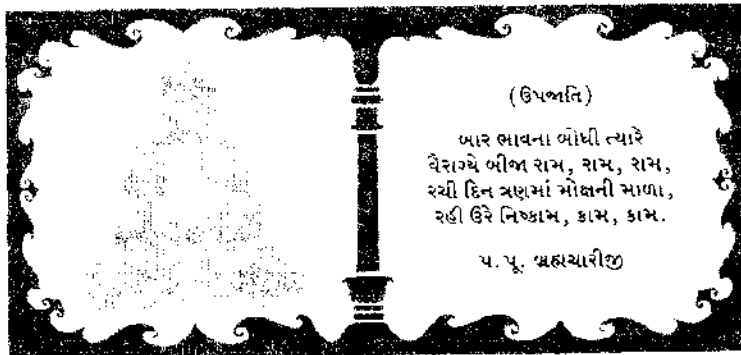 (ઉપજાતિ)
બાર ભાવના બોધી ત્યારે
વૈરાગ્યે બીજા રામ, રામ, રામ,
રચી દિન ત્રણમાં મોક્ષની માળા,
રહી ઉરે નિષ્કામ, કામ, કામ.
પ.પૂ. બ્રહ્મચારીજી